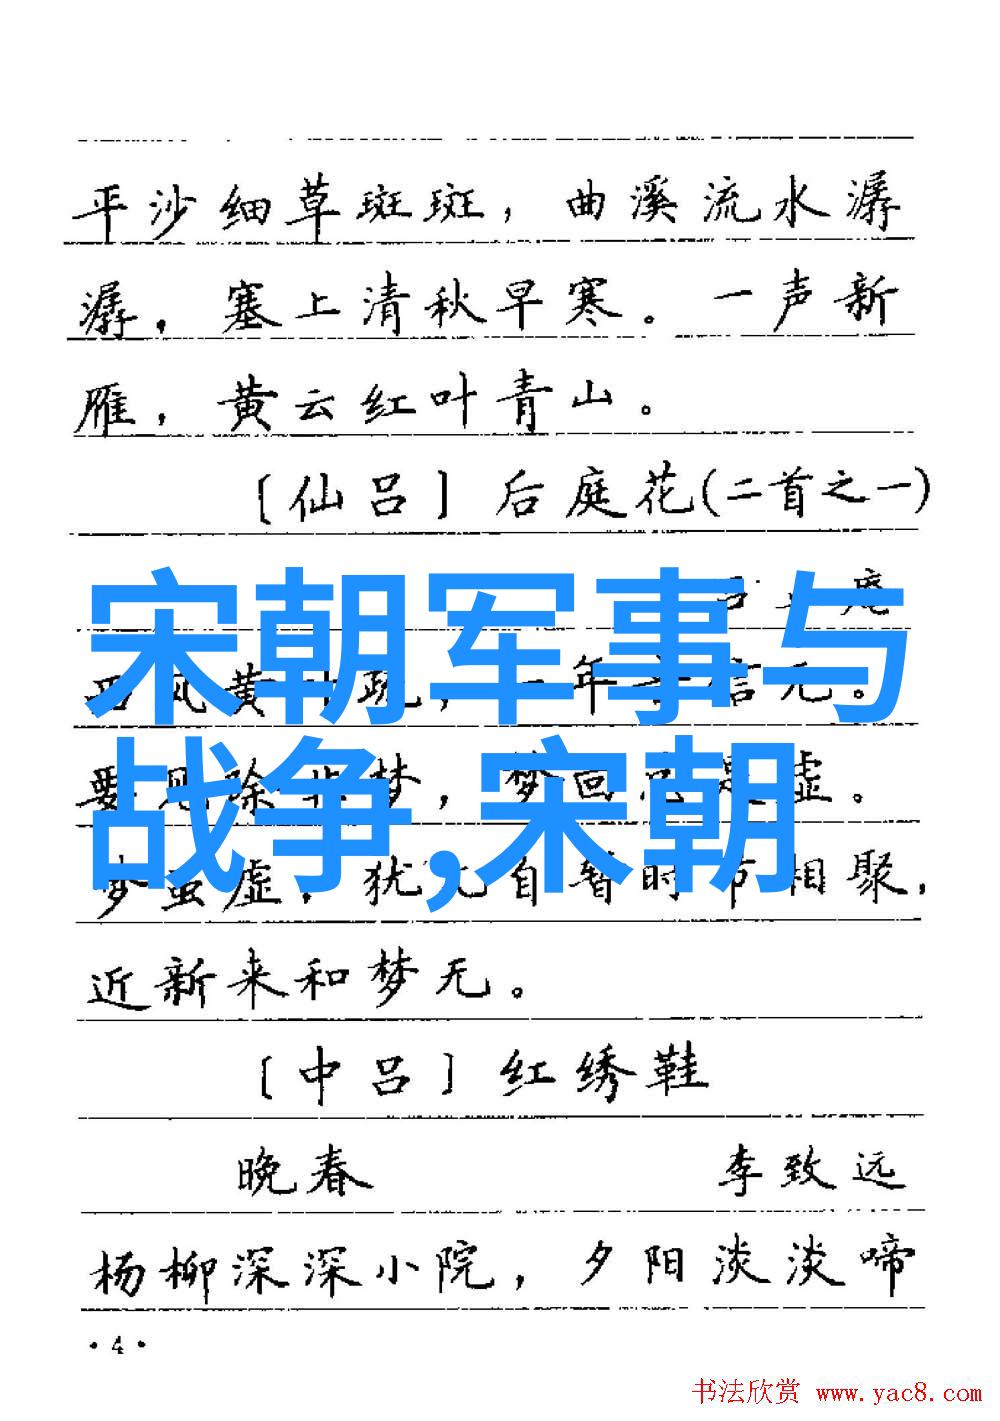 平沙细草斑斑，曲溪流水潺
潺，塞上清秋早寒。一声新
雁，黄云红叶青山。
〔仙吕〕后庭花(二首之一)
宋朝军事与
庵
西风黄叶疏，一年音信无。
战争,宋朝
要见除非梦，梦回是虚。
梦虽虚，犹兀自暂时节相聚，
近新来和梦无。
〔中吕〕红绣鞋
晚春 李致远
杨柳深深小院，夕阳淡淡啼
·4·
书法欣赏 www.yac8.com